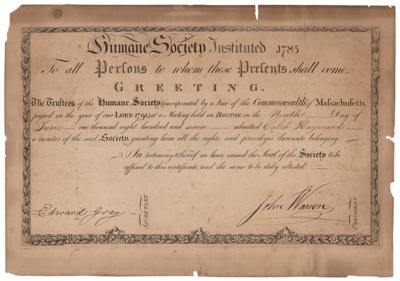 Humane Society Instituted 1785
To all Persons to whom these Presents shall come
GREETING.
The Trustees of the Humane Society incorporated by a Law of the Commonwealth of Massachusetts,
passed in the year of our LORD 1791, at a Meeting held in BOSTON on the Ninth Day of
June one thousand eight hundred and seven admitted Caleb Hayward
a member of the said Society, granting him all the rights and privileges thereunto belonging
In testimony whereof we have caused the Seal of the Society to be
affixed to this certificate, and the same to be duly attested
Edward Gray
SECRETARY
John Warren
PRESIDENT